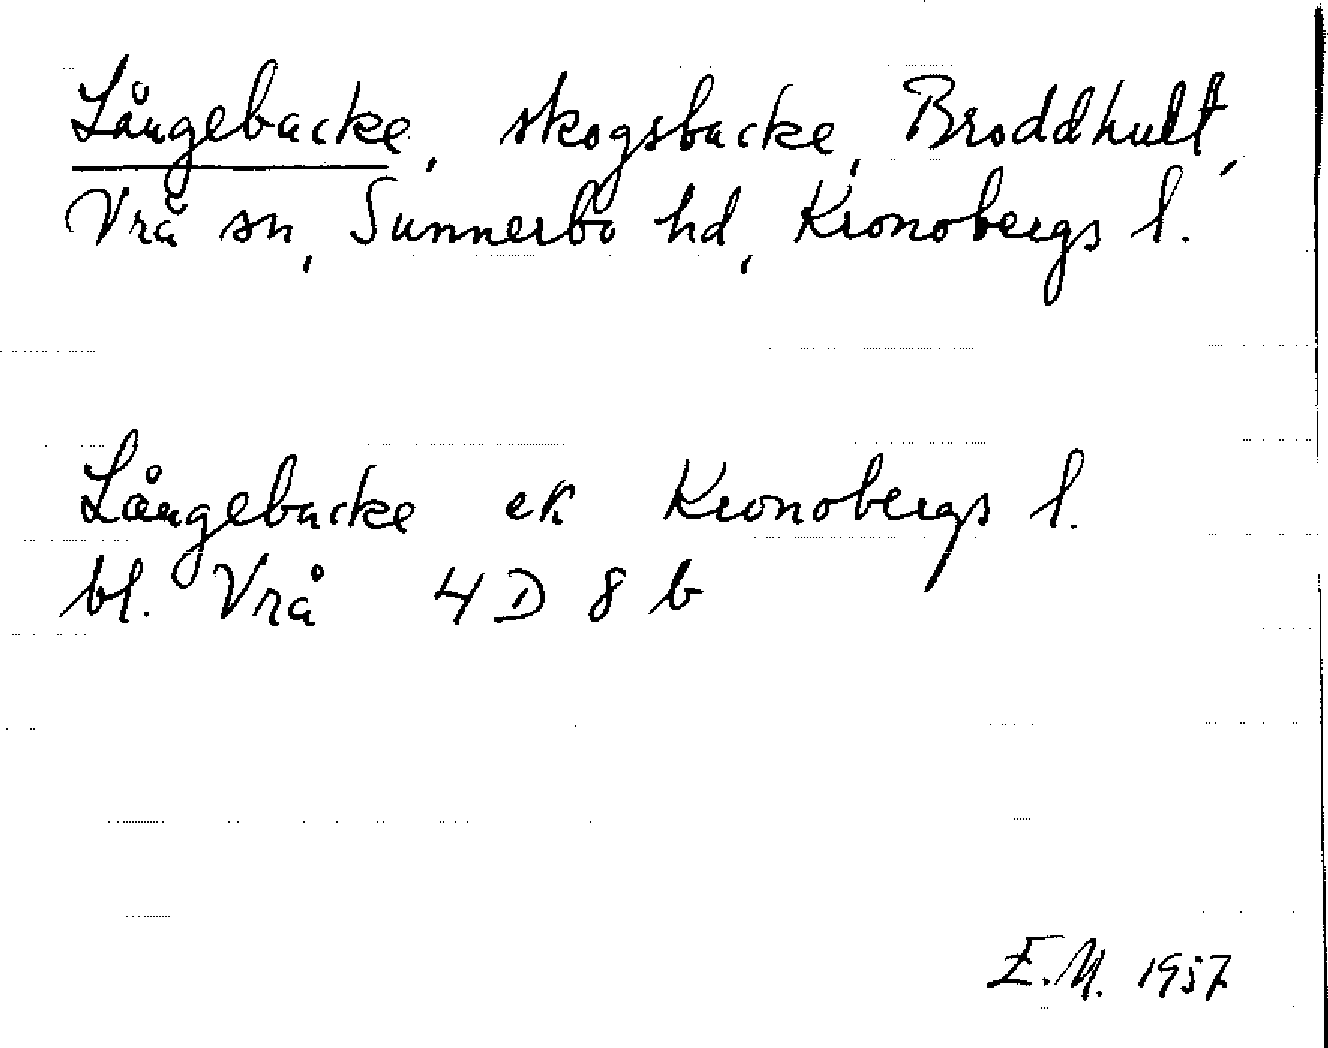 Långebacke, skogsbacke, Broddhult,
Vrå sn, Sunnerbo hd, Kronobergs l.
Långebacke ek Kronobergs l.
bl. Vrå 4 D 8 b
E.M. 1957